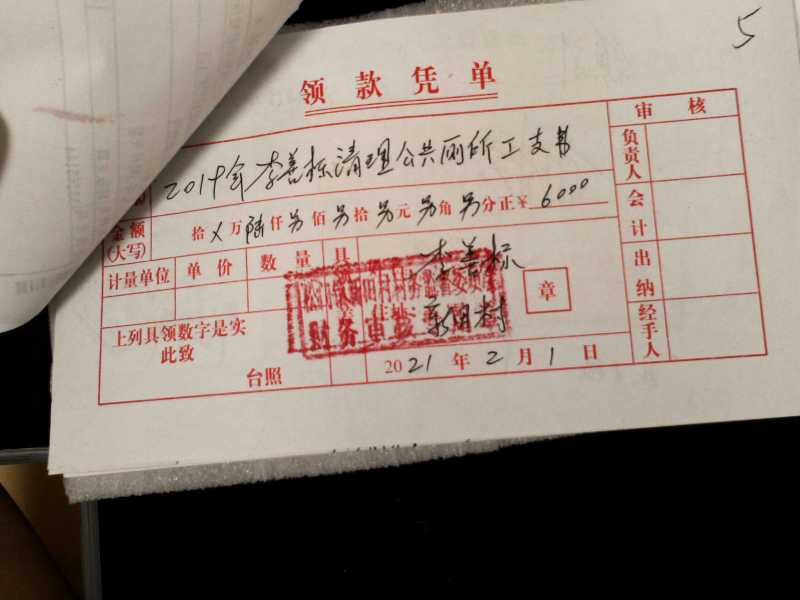 5
领款凭单
审核
2019年李善标清理公共厕所工支出
金额
(大写)
拾 乂 万 陆 仟 另 佰 另 拾 另 元 另 角 另 分正 ¥ 6000
负责人
会计
出纳
经手人
计量单位 单价 数量 具
李善标
新田村
章
财务审核
上列具领数字是实
此致
台照
2021 年 2 月 1 日